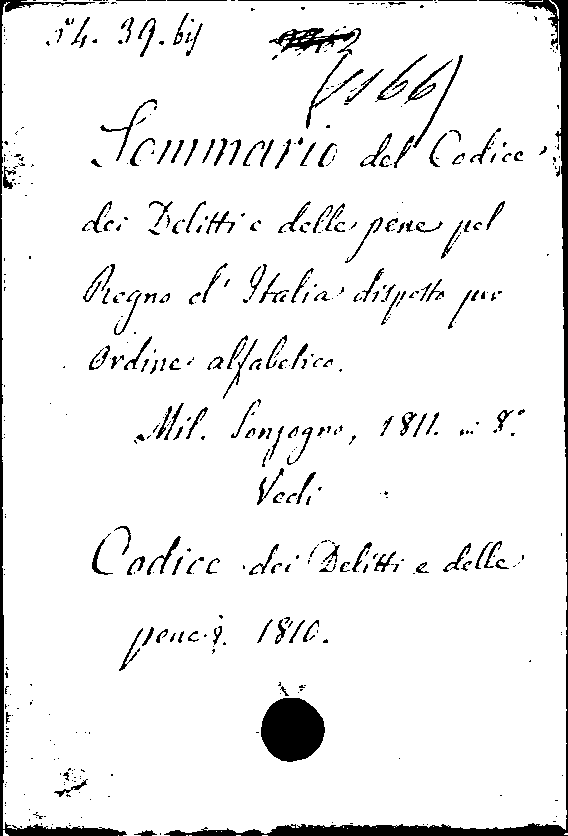 54. 39. bis
(1166)
Sommario del Codice
dei Delitti e delle pene pel
Regno d' Italia disposto per
Ordine alfabetico.
Mil. Sonzogno, 1811. in 8.°
Vedi
Codice dei Delitti e delle
pene 1810.